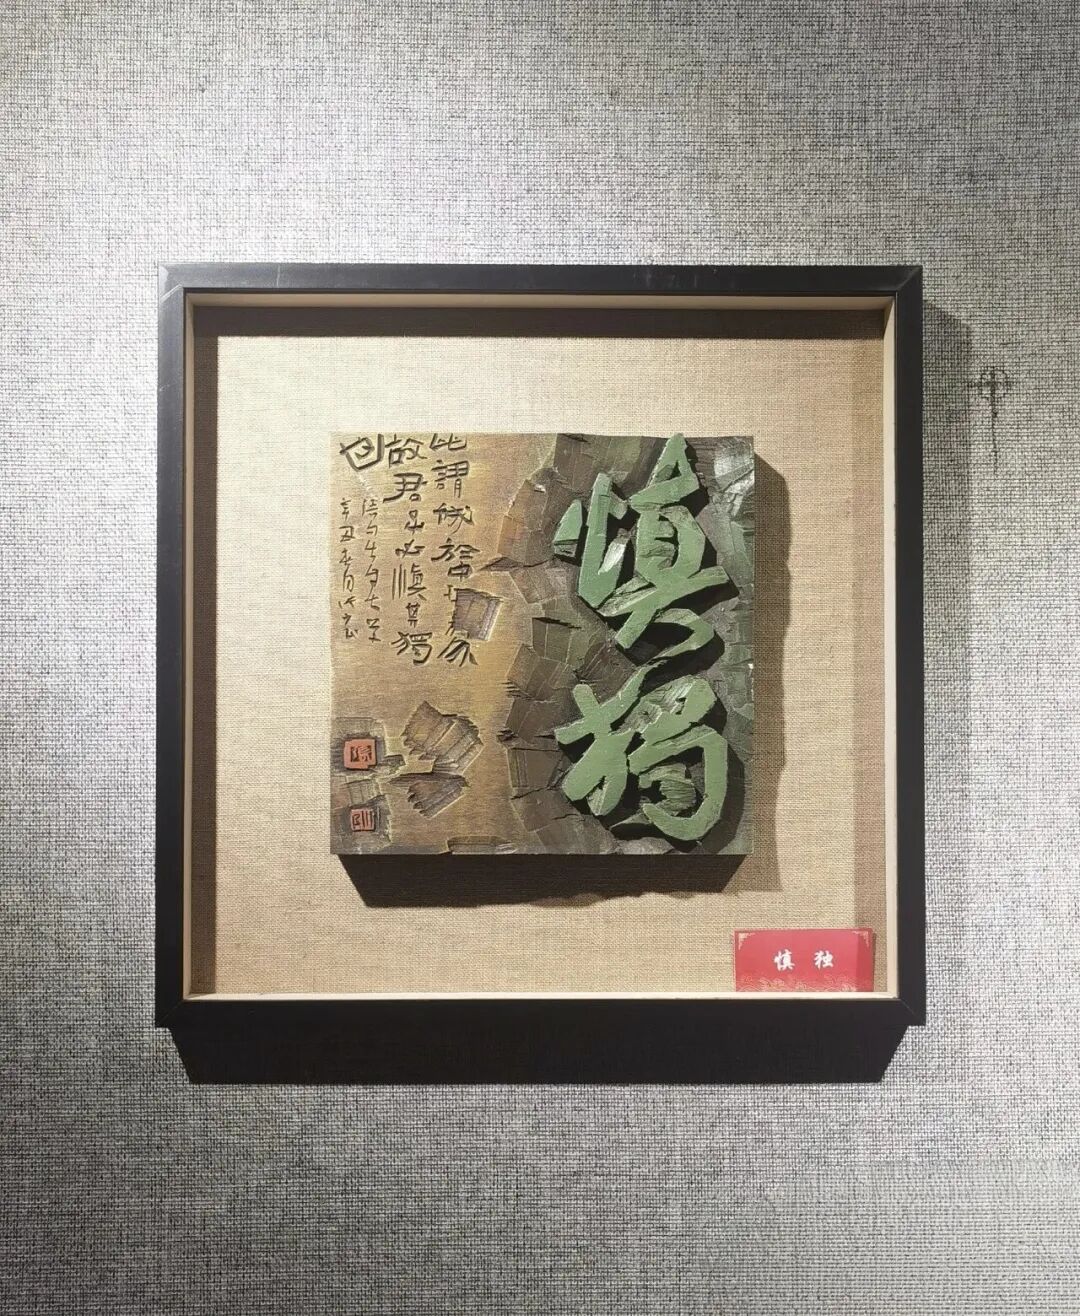 慎獨
此謂誠於中形於外
故君子必慎其獨
也
辛丑春月
慎独